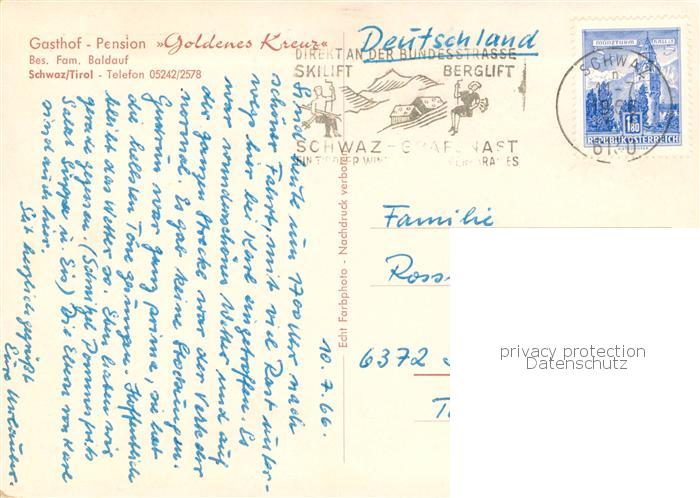 Gasthof - Pension »Goldenes Kreuz«
Bes. Fam. Baldauf
Schwaz/Tirol - Telefon 05242/2578
Deutschland
DIREKT AN DER BUNDESSTRASSE
SKILIFT BERGLIFT
SCHWAZ - GRAFENAST
MÜNZTURM HALL i.T.
SCHWAZ
6130
1.80
REPUBLIK ÖSTERREICH
10.7.66.
Sind heute um 1700 Uhr nach
schöner Fahrt, mit viel Rast unter-
wegs hier bei Karl eingetroffen. Es
war wunderschönes Wetter und auf
der ganzen Strecke war der Verkehr
normal. Es gab keine Stockungen.
war ganz prima, sie hat
die hellsten Töne gesungen. Hoffentlich
bleibt das Wetter so. Eben haben wir
gerade gegessen. (Schnitzel Pommes frits
Salat Suppe u. Eis) Die Eltern von Karl
sind auch hier.
Seit herzlich gegrüßt
Eure Urlauber.
Echt Farbphoto - Nachdruck verboten
Familie
Ross
6372
T
privacy protection
Datenschutz